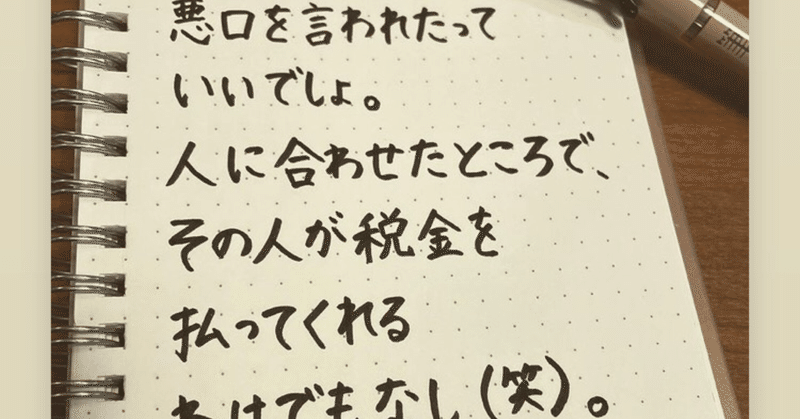 悪口を言われたって
いいでしょ。
人に合わせたところで、
その人が税金を
払ってくれる
わけでもなし(笑)。
筆